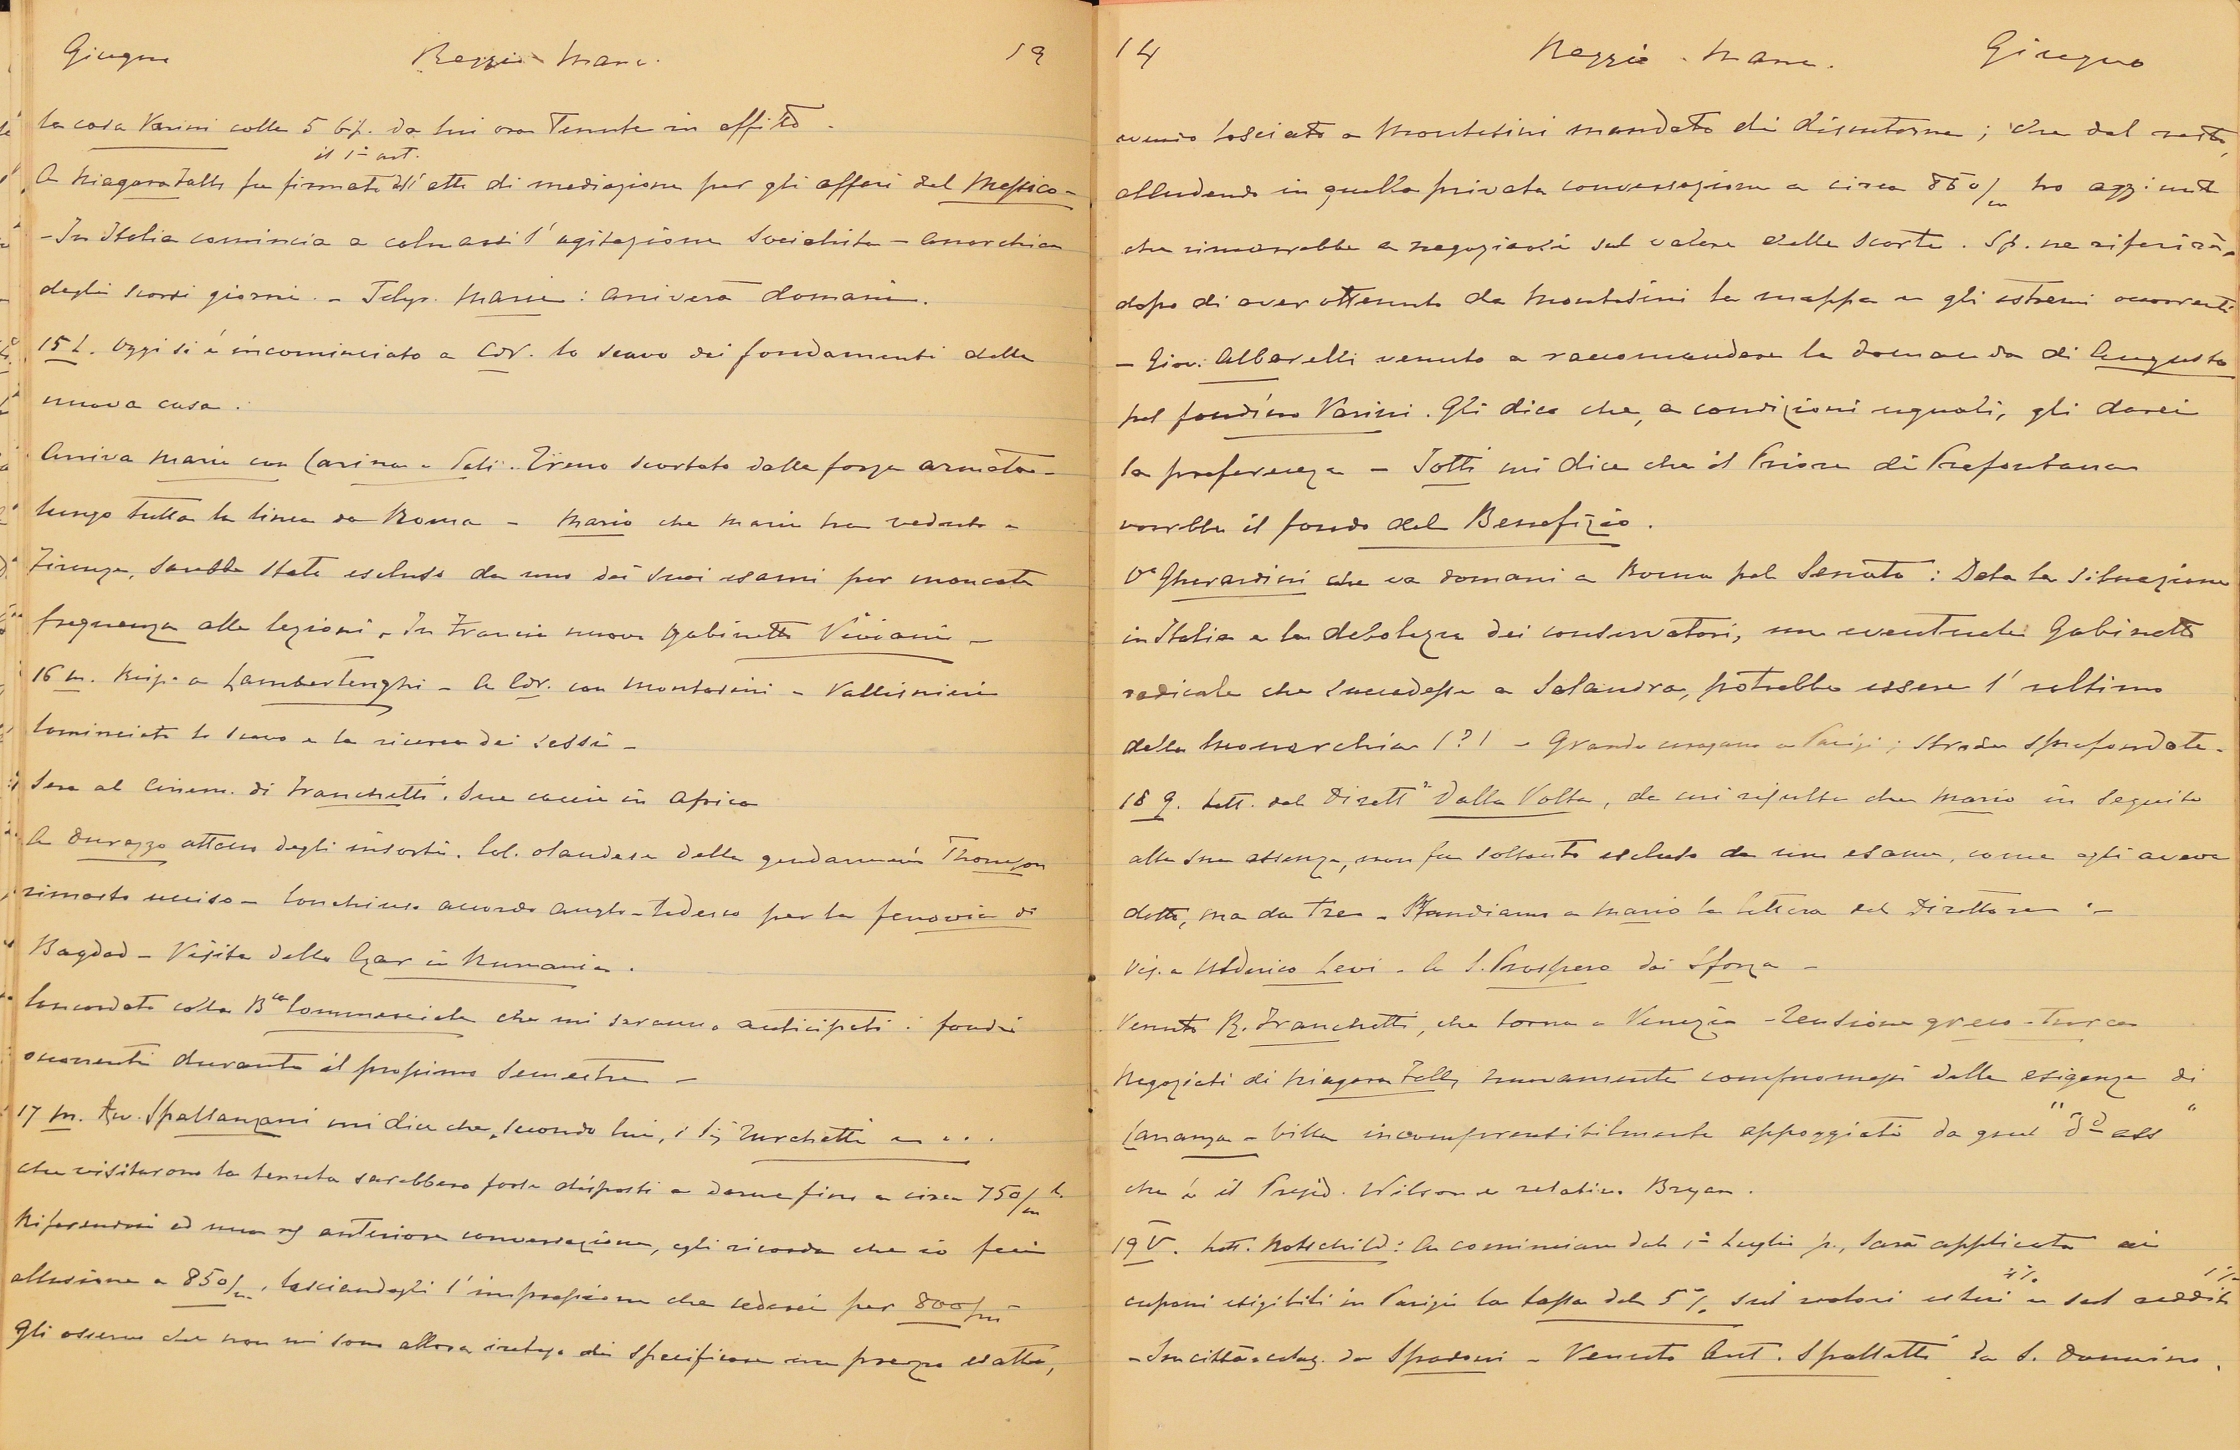 Giugno Reggio - Mare. 19
la casa Varini colle 5 bif. da lui ora Tenute in affitto -
il 1° art.
A Niagara Falls fu firmato dell'atto di mediazione per gli affari del Messico -
- In Italia comincia a calmarsi l'agitazione socialista - anarchica
degli scorsi giorni. - Telegr. Marie: arriverà domani.
15 L. Oggi si è incominciato a Cdr. lo scavo dei fondamenti della
nuova casa.
Arriva Marie con Carina e Poli. Treno scortato dalla forza armata -
lungo tutta la linea da Roma - Mario che Marie ha veduto a
Firenze, sarebbe stato escluso da uno dei suoi esami per mancata
frequenza alle lezioni. In Francia nuovo gabinetto Viviani -
16 m. Risp. a Lambertenghi - A Cdr. con Montasini - Vallisnieri
Cominciato lo scavo e la ricerca dei sassi -
Sera al Cinem. di Franchetti. Sue caccie in Africa
A Durazzo attacco degli insorti. Col. olandese della gendarmeria Thomson
rimasto ucciso - Conchiuso accordo anglo-tedesco per la ferrovia di
Bagdad - Visita dello Czar in Rumania.
Concordato colla Bca Commerciale che mi saranno anticipati i fondi
occorrenti durante il prossimo semestre -
17 m. Avv. Spallanzani mi dice che, secondo lui, i Sig Zurchetti e ...
che visitarono la tenuta sarebbero forse disposti a darne fino a circa 750/m L.
Riferendosi ad una anteriore conversazione, egli ricorda che io feci
allusione a 850/m, lasciandogli l'impressione che cederei per 800/m -
Gli osservo che non mi sono allora inteso di specificare un prezzo esatto,
14 Reggio - Mare. Giugno
avendo lasciato a Montesini mandato di discuterne; che del resto,
alludendo in quella privata conversazione a circa 850/m ho aggiunto
che rimarrebbe a negoziarsi sul valore delle scorte. Sp. ne riferirà,
dopo di aver ottenuto da Montesini la mappa e gli estremi occorrenti
- Giov. Albarelli venuto a raccomandare la domanda di Augusto
pel fondino Varini. Gli dico che, a condizioni uguali, gli darei
la preferenza - Totti mi dice che il Priore di Prefontana
vorrebbe il fondo del Benefizio.
Va Gherardini che va domani a Roma pel Senato: Data la situazione
in Italia e la debolezza dei conservatori, un eventuale Gabinetto
radicale che succedesse a Salandra, potrebbe essere l'ultimo
della Monarchia (?) - Grande uragano a Parigi; strade sprofondate.
18 g. Lett. del Dirett.e Dalla Volta, da cui risulta che Mario in seguito
alle sue assenze, non fu soltanto escluso da un esame, come egli aveva
detto, ma da tre - Mandiamo a Mario la lettera del Direttore -
Vis. a Ulderico Levi - A S. Prospero dai Sforza -
Venuto R. Franchetti, che torna a Venezia - Tensione greco-turca
Negoziati di Niagara Falls nuovamente compromessi dalle esigenze di
Carranza - Villa incomprensibilmente appoggiati da quel "
che è il Presid. Wilson e relativo Bryan.
19 V. Lett. Rotschild: A cominciare dal 1° Luglio p., sarà applicata ai
4% 1%
cuponi esigibili in Parigi la tassa del 5% sui valori esteri e sul reddito
- In città a colaz. da Spadoni - Venuto Ant. Spalletti da S. Donnino.